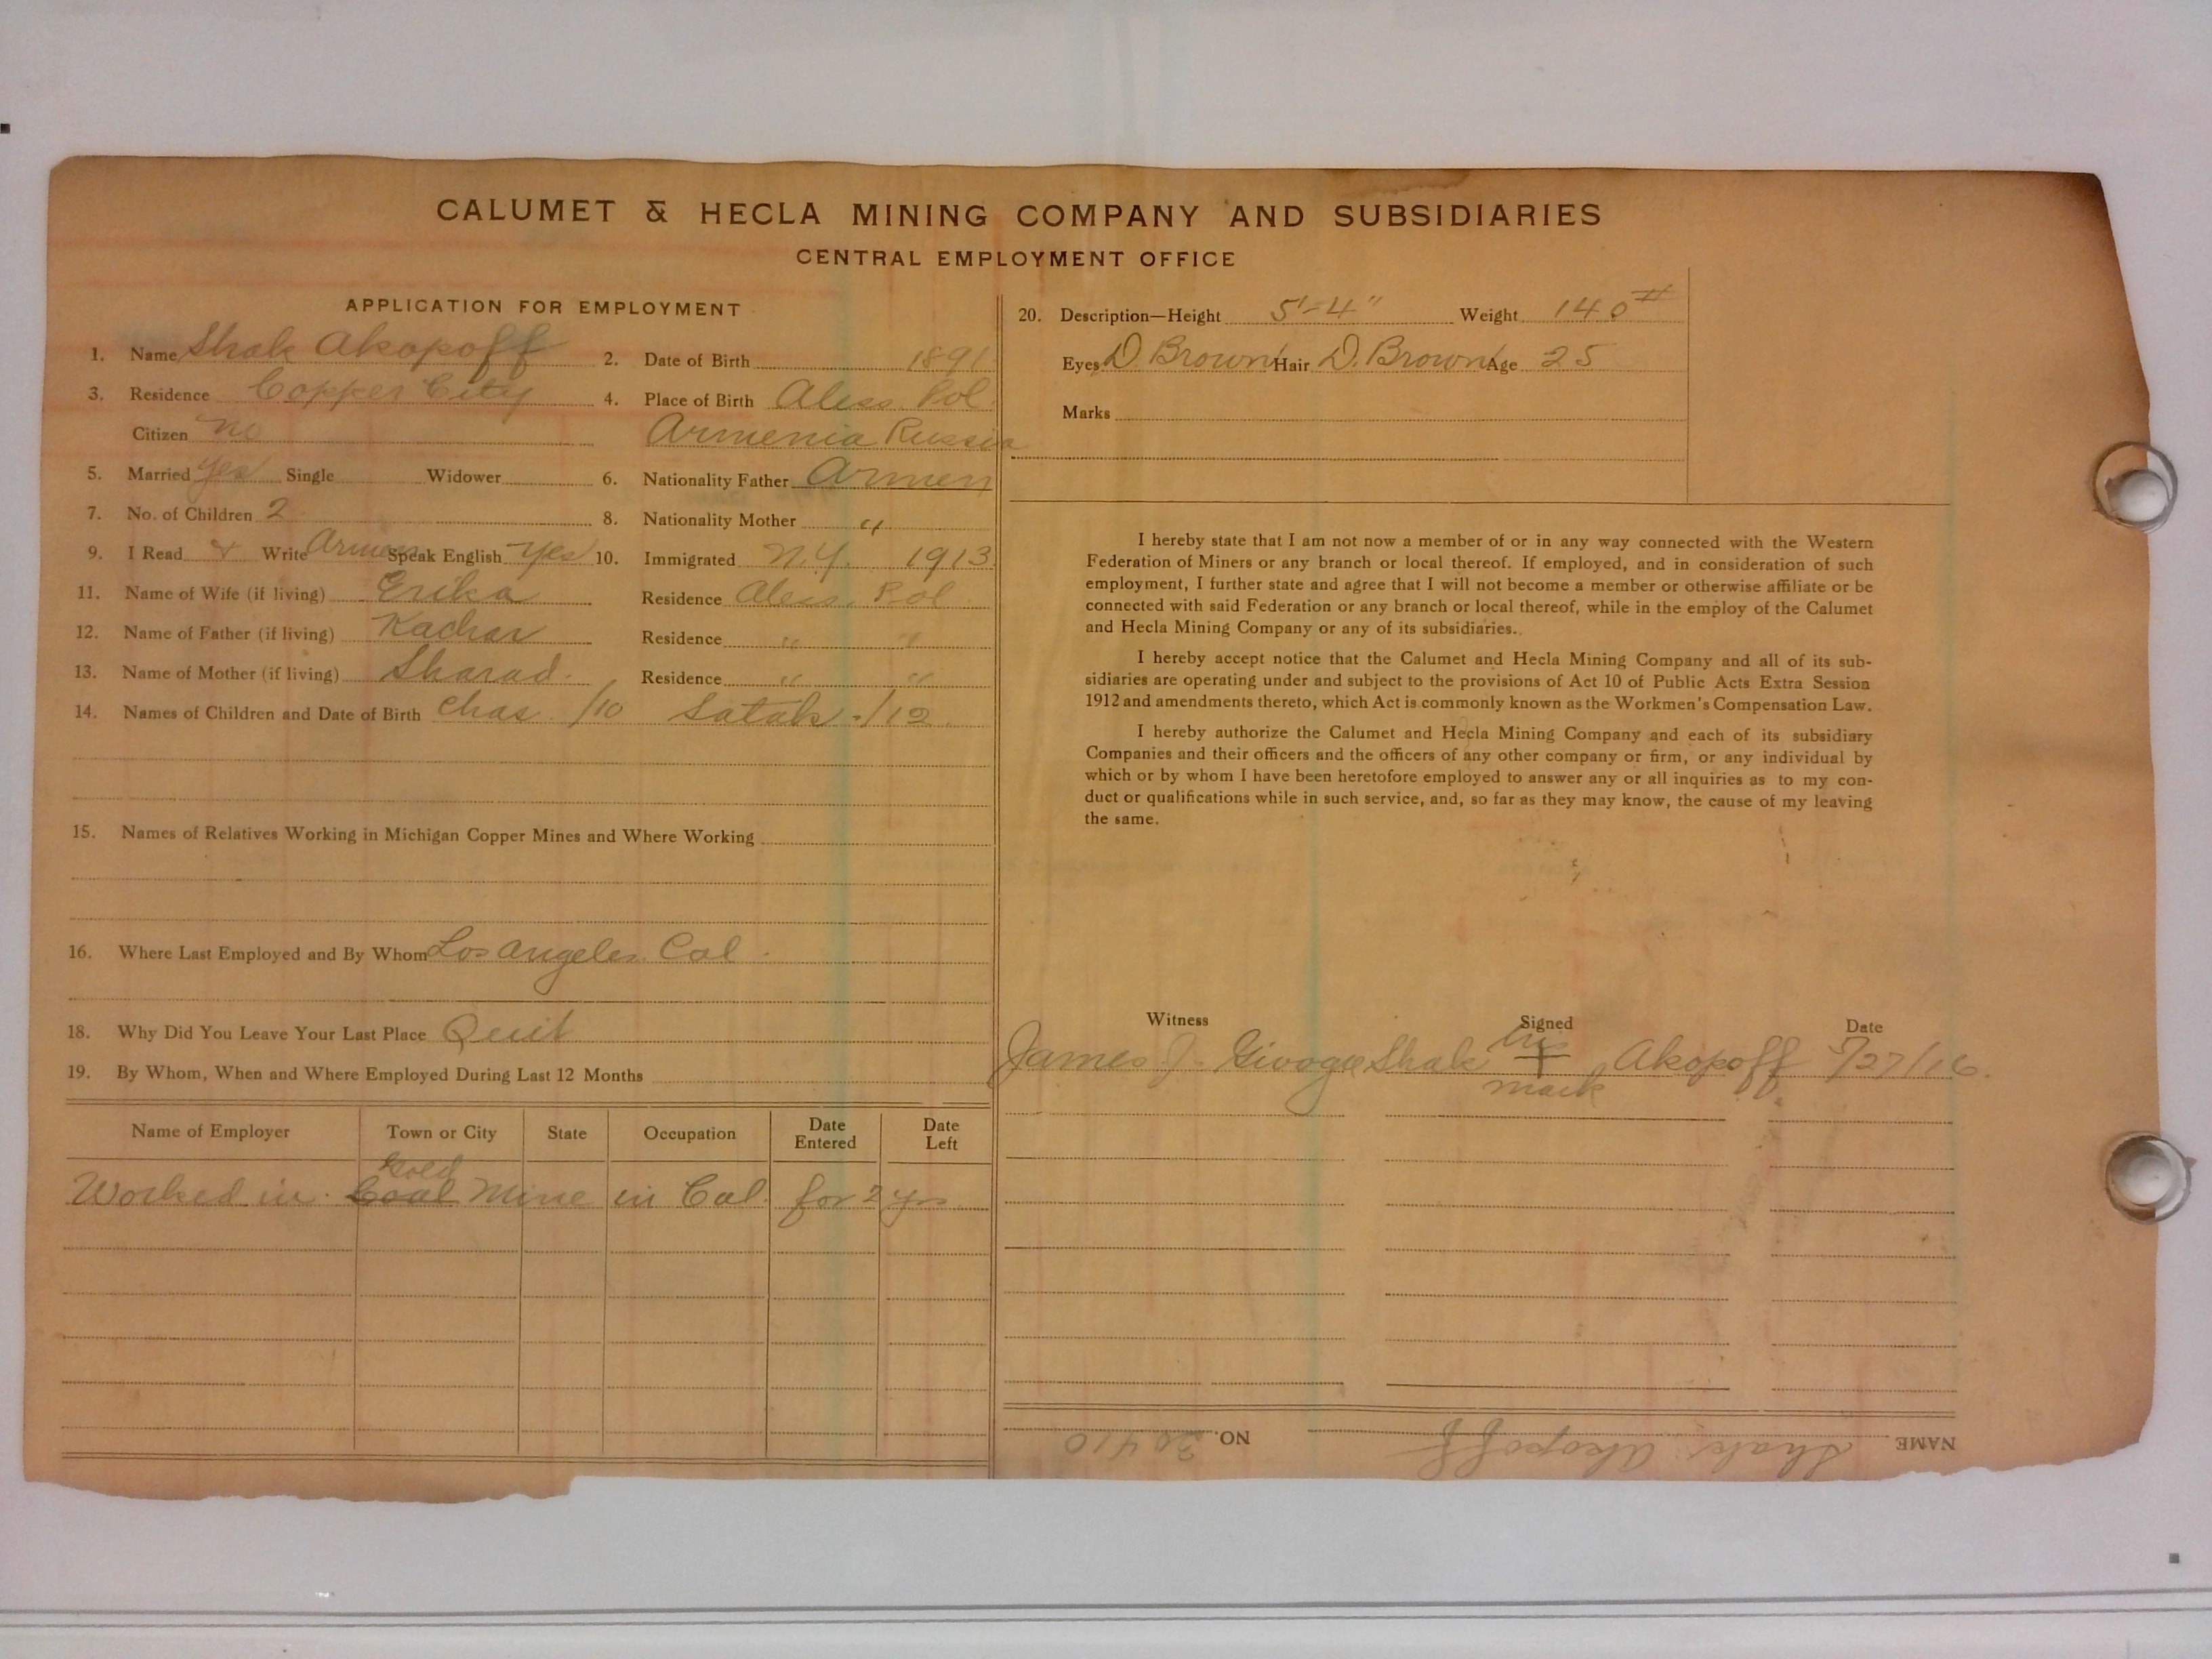 CALUMET & HECLA MINING COMPANY AND SUBSIDIARIES
CENTRAL EMPLOYMENT OFFICE
APPLICATION FOR EMPLOYMENT
1. Name Shak Akopoff 2. Date of Birth 1891
3. Residence Copper City 4. Place of Birth Aless. Pol.
Citizen no Armenia Russia
5. Married yes Single Widower 6. Nationality Father Armen
7. No. of Children 2 8. Nationality Mother "
9. I Read & Write Armen Speak English Yes 10. Immigrated N.Y. 1913
11. Name of Wife (if living) Erika Residence Aless. Pol
12. Name of Father (if living) Kachar Residence " "
13. Name of Mother (if living) Sharad. Residence " "
14. Names of Children and Date of Birth Chas. /10 Satak - /12
15. Names of Relatives Working in Michigan Copper Mines and Where Working
16. Where Last Employed and By Whom Los Angeles. Cal.
18. Why Did You Leave Your Last Place Quit
19. By Whom, When and Where Employed During Last 12 Months
Name of Employer Town or City State Occupation Date Entered Date Left
Gold
Worked in Coal Mine in Cal. for 2 yrs
20. Description—Height 5'-4" Weight 140#
Eyes D. Brown Hair D. Brown Age 25
Marks
I hereby state that I am not now a member of or in any way connected with the Western
Federation of Miners or any branch or local thereof. If employed, and in consideration of such
employment, I further state and agree that I will not become a member or otherwise affiliate or be
connected with said Federation or any branch or local thereof, while in the employ of the Calumet
and Hecla Mining Company or any of its subsidiaries.
I hereby accept notice that the Calumet and Hecla Mining Company and all of its sub-
sidiaries are operating under and subject to the provisions of Act 10 of Public Acts Extra Session
1912 and amendments thereto, which Act is commonly known as the Workmen's Compensation Law.
I hereby authorize the Calumet and Hecla Mining Company and each of its subsidiary
Companies and their officers and the officers of any other company or firm, or any individual by
which or by whom I have been heretofore employed to answer any or all inquiries as to my con-
duct or qualifications while in such service, and, so far as they may know, the cause of my leaving
the same.
Witness Signed Date
his
James J. Shak + Akopoff 5/27/16.
mark
NAME Shak Akopoff NO. 20410